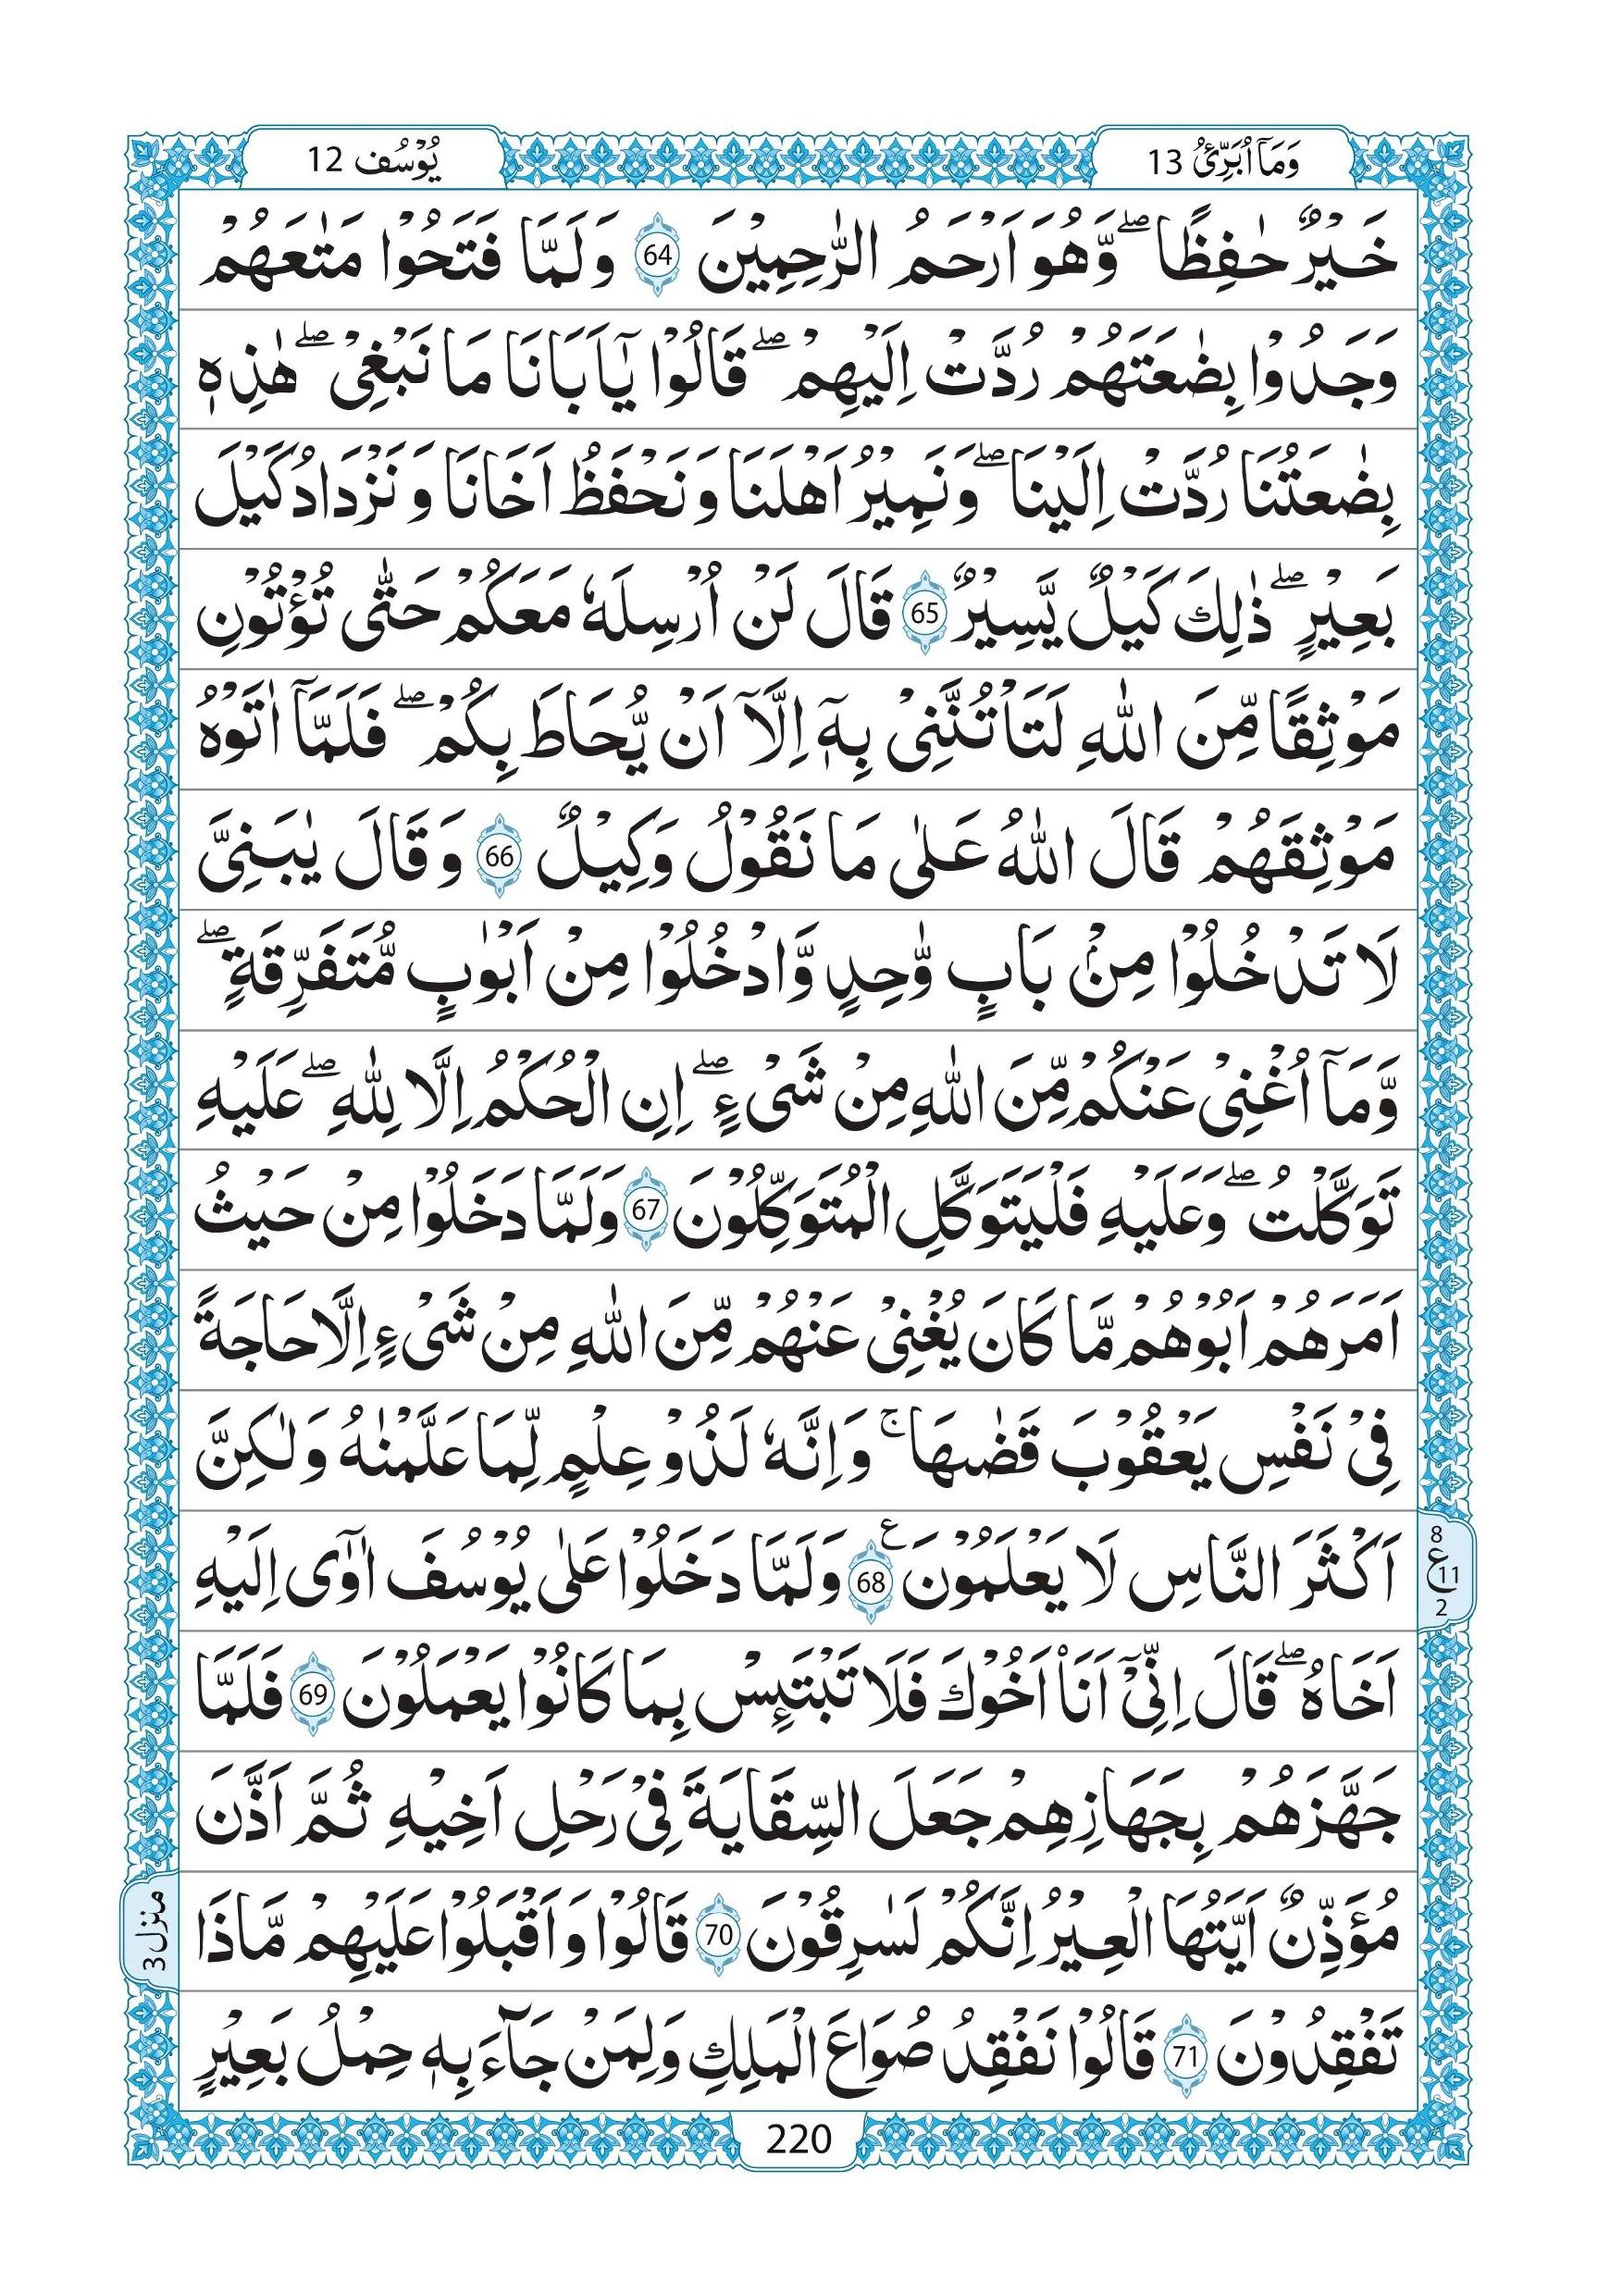 وَمَاۤ اُبَرِّئُ 13
يُوْسُف 12
خَيْرٌ حٰفِظًا ۖ وَّهُوَ اَرْحَمُ الرّٰحِمِيْنَ 64 وَلَمَّا فَتَحُوْا مَتٰعَهُمْ
وَجَدُوْا بِضٰعَتَهُمْ رُدَّتْ اِلَيْهِمْ ۖ قَالُوْا يٰۤاَبَانَا مَا نَبْغِيْ ۖ هٰذِهٖ
بِضٰعَتُنَا رُدَّتْ اِلَيْنَا ۖ وَنَمِيْرُ اَهْلَنَا وَنَحْفَظُ اَخَانَا وَنَزْدَادُ كَيْلَ
بَعِيْرٍ ۖ ذٰلِكَ كَيْلٌ يَّسِيْرٌ 65 قَالَ لَنْ اُرْسِلَهٗ مَعَكُمْ حَتّٰى تُؤْتُوْنِ
مَوْثِقًا مِّنَ اللّٰهِ لَتَاْتُنَّنِيْ بِهٖۤ اِلَّاۤ اَنْ يُّحَاطَ بِكُمْ ۖ فَلَمَّاۤ اٰتَوْهُ
مَوْثِقَهُمْ قَالَ اللّٰهُ عَلٰى مَا نَقُوْلُ وَكِيْلٌ 66 وَقَالَ يٰبَنِيَّ
لَا تَدْخُلُوْا مِنْۢ بَابٍ وّٰحِدٍ وَّادْخُلُوْا مِنْ اَبْوٰبٍ مُّتَفَرِّقَةٍ ۖ
وَّمَاۤ اُغْنِيْ عَنْكُمْ مِّنَ اللّٰهِ مِنْ شَيْءٍ ۖ اِنِ الْحُكْمُ اِلَّا لِلّٰهِ ۖ عَلَيْهِ
تَوَكَّلْتُ ۖ وَعَلَيْهِ فَلْيَتَوَكَّلِ الْمُتَوَكِّلُوْنَ 67 وَلَمَّا دَخَلُوْا مِنْ حَيْثُ
اَمَرَهُمْ اَبُوْهُمْ مَّا كَانَ يُغْنِيْ عَنْهُمْ مِّنَ اللّٰهِ مِنْ شَيْءٍ اِلَّا حَاجَةً
فِيْ نَفْسِ يَعْقُوْبَ قَضٰىهَا ۚ وَاِنَّهٗ لَذُوْ عِلْمٍ لِّمَا عَلَّمْنٰهُ وَلٰكِنَّ
اَكْثَرَ النَّاسِ لَا يَعْلَمُوْنَ ع 68 وَلَمَّا دَخَلُوْا عَلٰى يُوْسُفَ اٰوٰۤى اِلَيْهِ
8
ع 11
2
اَخَاهُ ۖ قَالَ اِنِّيْۤ اَنَا۠ اَخُوْكَ فَلَا تَبْتَىِٕسْ بِمَا كَانُوْا يَعْمَلُوْنَ 69 فَلَمَّا
جَهَّزَهُمْ بِجَهَازِهِمْ جَعَلَ السِّقَايَةَ فِيْ رَحْلِ اَخِيْهِ ثُمَّ اَذَّنَ
مُؤَذِّنٌ اَيَّتُهَا الْعِيْرُ اِنَّكُمْ لَسٰرِقُوْنَ 70 قَالُوْا وَاَقْبَلُوْا عَلَيْهِمْ مَّاذَا
منزل 3
تَفْقِدُوْنَ 71 قَالُوْا نَفْقِدُ صُوَاعَ الْمَلِكِ وَلِمَنْ جَآءَ بِهٖ حِمْلُ بَعِيْرٍ
220